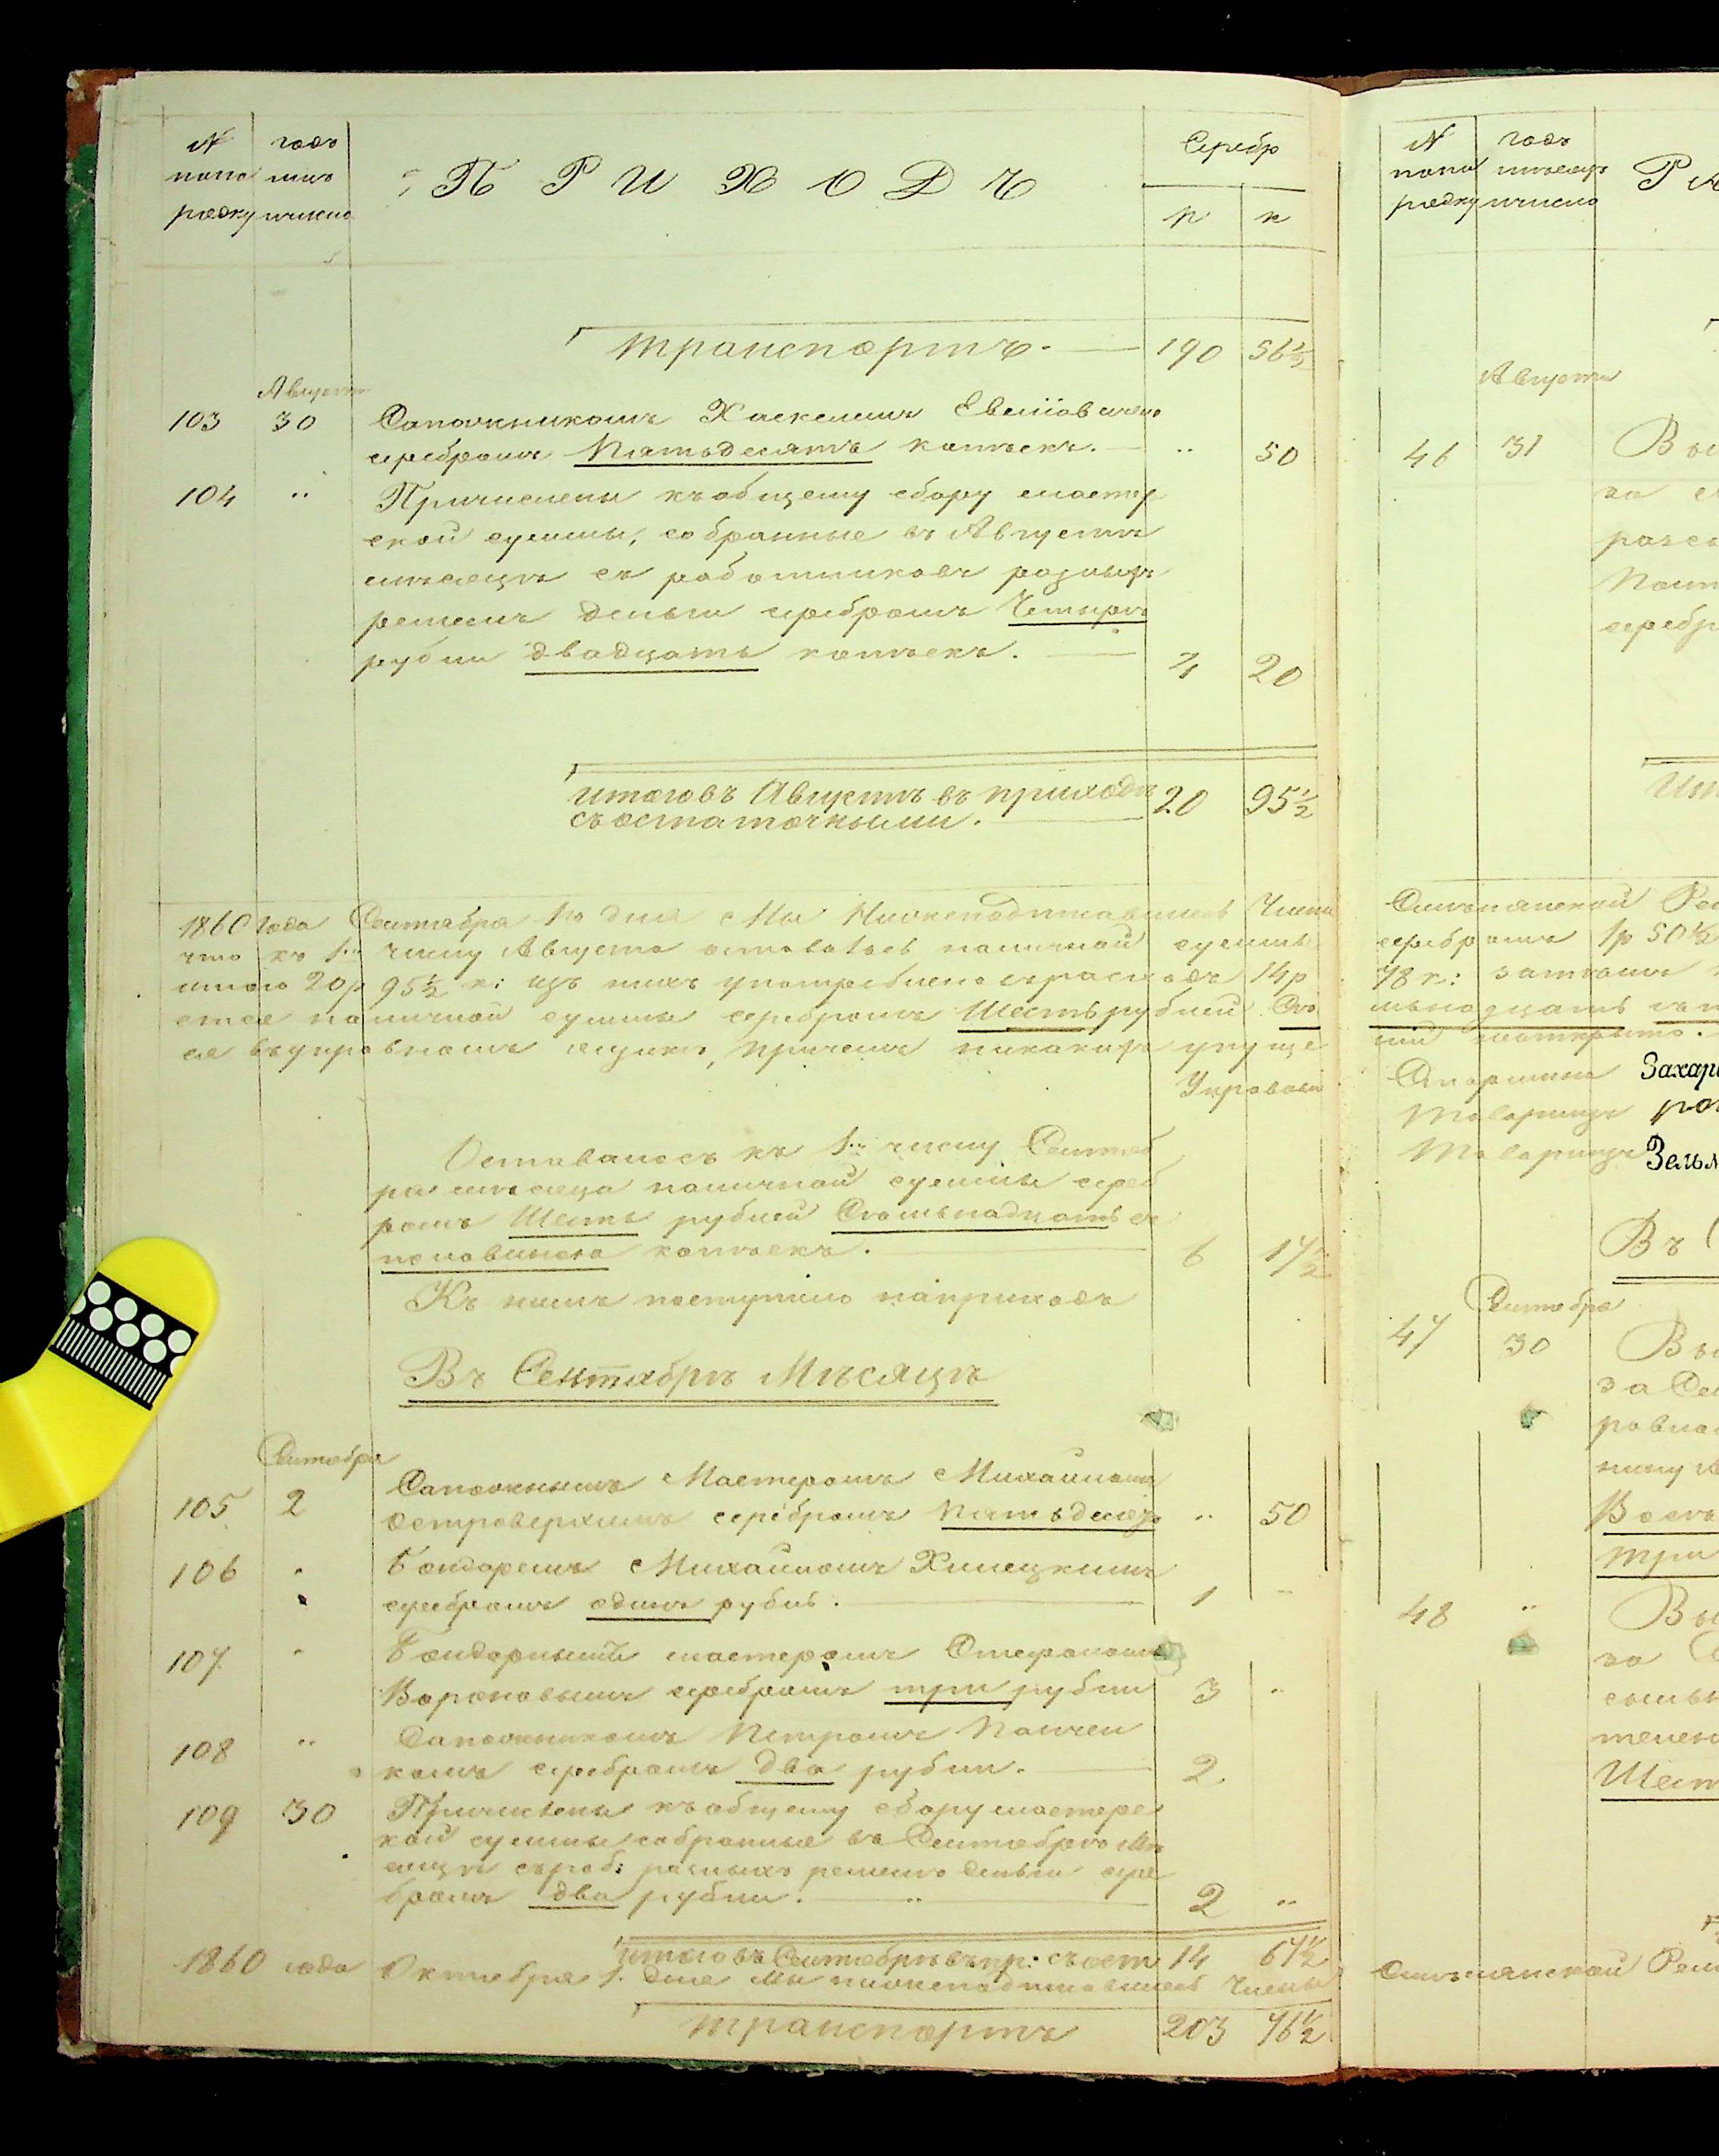 N годъ ПРИХОДЪ Серебр
попо мцъ
рядку ичисло р к
Транспортъ. 190 56½
Августа
103 30 Сапожникомъ Хаскелемъ
серебромъ Пятьдесятъ копѣекъ. „ 50
104 „ Причислены къ общему сбору мастер
ской суммы, собранные въ Августѣ
мѣсяцѣ съ работниковъ разныхъ
ремеслъ деньги серебромъ Четыре
рубли двадцать копѣекъ. 4 20
Итого въ Августѣ въ приходѣ 20 95½
съ остаточными.
1860 года Сентября 1го дня Мы Нижеподписавшиесь Члены
что къ 1му числу Августа оставалось наличной суммы
итого 20 р 95½ к: изъ нихъ употреблено въ расходъ 14 р
ется наличной суммы серебромъ Шесть рублей Сѣ
ся въ управномъ ящикѣ, причемъ никакихъ упуще
Управы
Оставалось къ 1му числу Сентяб
ря мѣсяца наличной суммы сереб
ромъ Шесть рублей Сѣмьнадцать съ
половиною копѣекъ. 6 17½
Къ нимъ поступило на приходъ
Въ Сентябрѣ Мѣсяцѣ
Сентября
105 2 Сапожнымъ Мастеромъ Михайломъ
Островерхимъ серебромъ Пятьдесят „ 50
106 „ Бондаремъ Михайломъ
серебромъ одинъ рубль. 1 „
107 „ Бондарнымъ мастеромъ Стефаномъ
Вороновымъ серебромъ три рубли 3 „
108 „ Сапожникомъ Петромъ Панчен
комъ серебромъ два рубли. 2
109 30 Причислены къ общему сбору мастерс
кой суммы собранные въ Сентябрѣ Мѣ
сяцѣ съ раб: разныхъ ремеслъ деньги сере
бромъ два рубли. 2 „
Итого въ Сентябрѣ въ пр: съ ост 14 67½
1860 года Октября 1. дня Мы нижеподписавшиесь Члены
Транспортъ 203 76½
N годъ РА
попо мѣсяцъ
рядку ичисло
Августа
46 31 Вы
за
Пят
серебр
Ит
Ремес
серебромъ 1 р 50½
78 к: затѣмъ
мьнадцать съ п
ний неоткрыто.
Старшина Захар
Товарищъ
Товарищъ Зельм
Въ С
Сентября
47 30 Вы
за Сен
Восѣ
три
48 „ Вы
за С
Шест
Рем